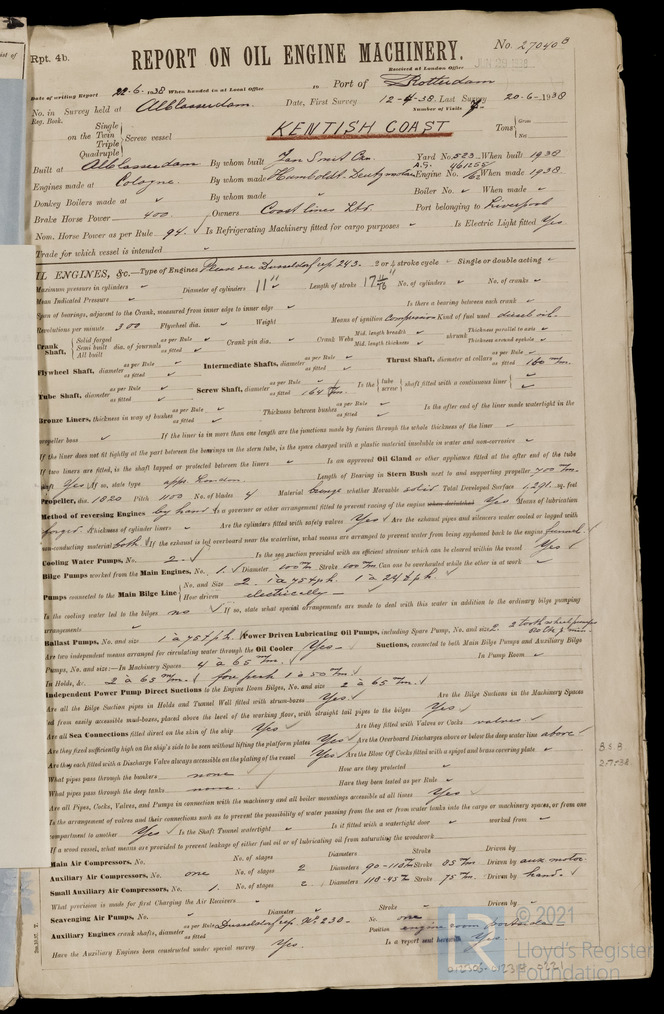 Rpt. 4b.
REPORT ON OIL ENGINE MACHINERY.
No. 27040B
Received at London Office
Date of writing Report 22-6-1938 When handed in at Local Office 19 Port of Rotterdam
No. in Survey held at Alblasserdam. Date, First Survey 12-4-38. Last Survey 20-6-1938
Reg. Book. Number of Visits
Single
on the Twin Screw vessel
Triple
Quadruple
KENTISH COAST
Tons Gross
Net
Built at Alblasserdam By whom built Jan Smit Czn. Yard No. 523 When built 1938
Engines made at Cologne. By whom made Humboldt Deutz motoren Engine No. 461255/62 When made 1938
Donkey Boilers made at By whom made Boiler No. When made
Brake Horse Power 400. Owners Coast Lines Ltd. Port belonging to Liverpool
Nom. Horse Power as per Rule 94. Is Refrigerating Machinery fitted for cargo purposes Is Electric Light fitted Yes
Trade for which vessel is intended
IL ENGINES, &c. Type of Engines Please see Dusseldorf rep. 243. 2 or 4 stroke cycle Single or double acting
Maximum pressure in cylinders Diameter of cylinders 11" Length of stroke 17 11/16" No. of cylinders No. of cranks
Mean Indicated Pressure
Span of bearings, adjacent to the Crank, measured from inner edge to inner edge Is there a bearing between each crank
Revolutions per minute 300 Flywheel dia. Weight Means of ignition Compression Kind of fuel used diesel oil.
Crank Shaft, Solid forged Semi built All built dia. of journals as per Rule as fitted Crank pin dia. Crank Webs Mid. length breadth Mid. length thickness shrunk Thickness parallel to axis Thickness around eyehole
Flywheel Shaft, diameter as per Rule as fitted Intermediate Shafts, diameter as per Rule as fitted Thrust Shaft, diameter at collars as per Rule as fitted 160 m/m.
Tube Shaft, diameter as per Rule as fitted Screw Shaft, diameter as per Rule as fitted 164 m/m Is the tube screw shaft fitted with a continuous liner
Bronze Liners, thickness in way of bushes as per Rule as fitted Thickness between bushes as per Rule as fitted Is the after end of the liner made watertight in the
propeller boss If the liner is in more than one length are the junctions made by fusion through the whole thickness of the liner
If the liner does not fit tightly at the part between the bearings in the stern tube, is the space charged with a plastic material insoluble in water and non-corrosive
If two liners are fitted, is the shaft lapped or protected between the liners Is an approved Oil Gland or other appliance fitted at the after end of the tube
shaft Yes If so, state type app. London. Length of Bearing in Stern Bush next to and supporting propeller 700 m/m.
Propeller, dia. 1820 Pitch 1100 No. of blades 4 Material bronze whether Moveable solid Total Developed Surface 1.291 sq. feet
Method of reversing Engines by hand Is a governor or other arrangement fitted to prevent racing of the engine when declutched Yes Means of lubrication
forced. Thickness of cylinder liners Are the cylinders fitted with safety valves Yes Are the exhaust pipes and silencers water cooled or lagged with
non-conducting material both If the exhaust is led overboard near the waterline, what means are arranged to prevent water from being syphoned back to the engine funnel.
Cooling Water Pumps, No. 2. Is the sea suction provided with an efficient strainer which can be cleared within the vessel Yes
Bilge Pumps worked from the Main Engines, No. 1. Diameter 100 m/m Stroke 100 m/m Can one be overhauled while the other is at work
Pumps connected to the Main Bilge Line No. and Size 2. 1 à 75 t/p.h. 1 à 24 t/p.h.
How driven electrically
Is the cooling water led to the bilges no If so, state what special arrangements are made to deal with this water in addition to the ordinary bilge pumping
arrangements
Ballast Pumps, No. and size 1 à 75 t/p.h. Power Driven Lubricating Oil Pumps, including Spare Pump, No. and size 2. 2 tooth wheel pumps
Are two independent means arranged for circulating water through the Oil Cooler Yes Suctions, connected to both Main Bilge Pumps and Auxiliary Bilge
Pumps, No. and size:—In Machinery Spaces 4 à 65 m/m. In Pump Room
In Holds, &c. 2 à 65 m/m. fore peak 1 à 50 m/m.
Independent Power Pump Direct Suctions to the Engine Room Bilges, No. and size 2 à 65 m/m.
Are all the Bilge Suction pipes in Holds and Tunnel Well fitted with strum-boxes Yes Are the Bilge Suctions in the Machinery Spaces
led from easily accessible mud-boxes, placed above the level of the working floor, with straight tail pipes to the bilges Yes
Are all Sea Connections fitted direct on the skin of the ship Yes Are they fitted with Valves or Cocks valves
Are they fixed sufficiently high on the ship's side to be seen without lifting the platform plates Yes Are the Overboard Discharges above or below the deep water line above
Are they each fitted with a Discharge Valve always accessible on the plating of the vessel Yes Are the Blow Off Cocks fitted with a spigot and brass covering plate
What pipes pass through the bunkers none How are they protected
What pipes pass through the deep tanks none. Have they been tested as per Rule
Are all Pipes, Cocks, Valves, and Pumps in connection with the machinery and all boiler mountings accessible at all times Yes
Is the arrangement of valves and their connections such as to prevent the possibility of water passing from the sea or from water tanks into the cargo or machinery spaces, or from one
compartment to another Yes Is the Shaft Tunnel watertight Is it fitted with a watertight door worked from
If a wood vessel, what means are provided to prevent leakage of either fuel oil or of lubricating oil from saturating the woodwork
Main Air Compressors, No. No. of stages Diameters Stroke Driven by
Auxiliary Air Compressors, No. one No. of stages 2 Diameters 90-110 m/m Stroke 85 m/m. Driven by aux motor
Small Auxiliary Air Compressors, No. 1. No. of stages 2 Diameters 110-45 m/m Stroke 75 m/m. Driven by hand.
What provision is made for first Charging the Air Receivers
Scavenging Air Pumps, No. Diameter Stroke Driven by
Auxiliary Engines crank shafts, diameter as per Rule as fitted Dusseldorf rep. No. 230. No. one Position engine room
Have the Auxiliary Engines been constructed under special survey Yes. Is a report sent herewith Yes.
© 2021
Lloyd's Register
Foundation